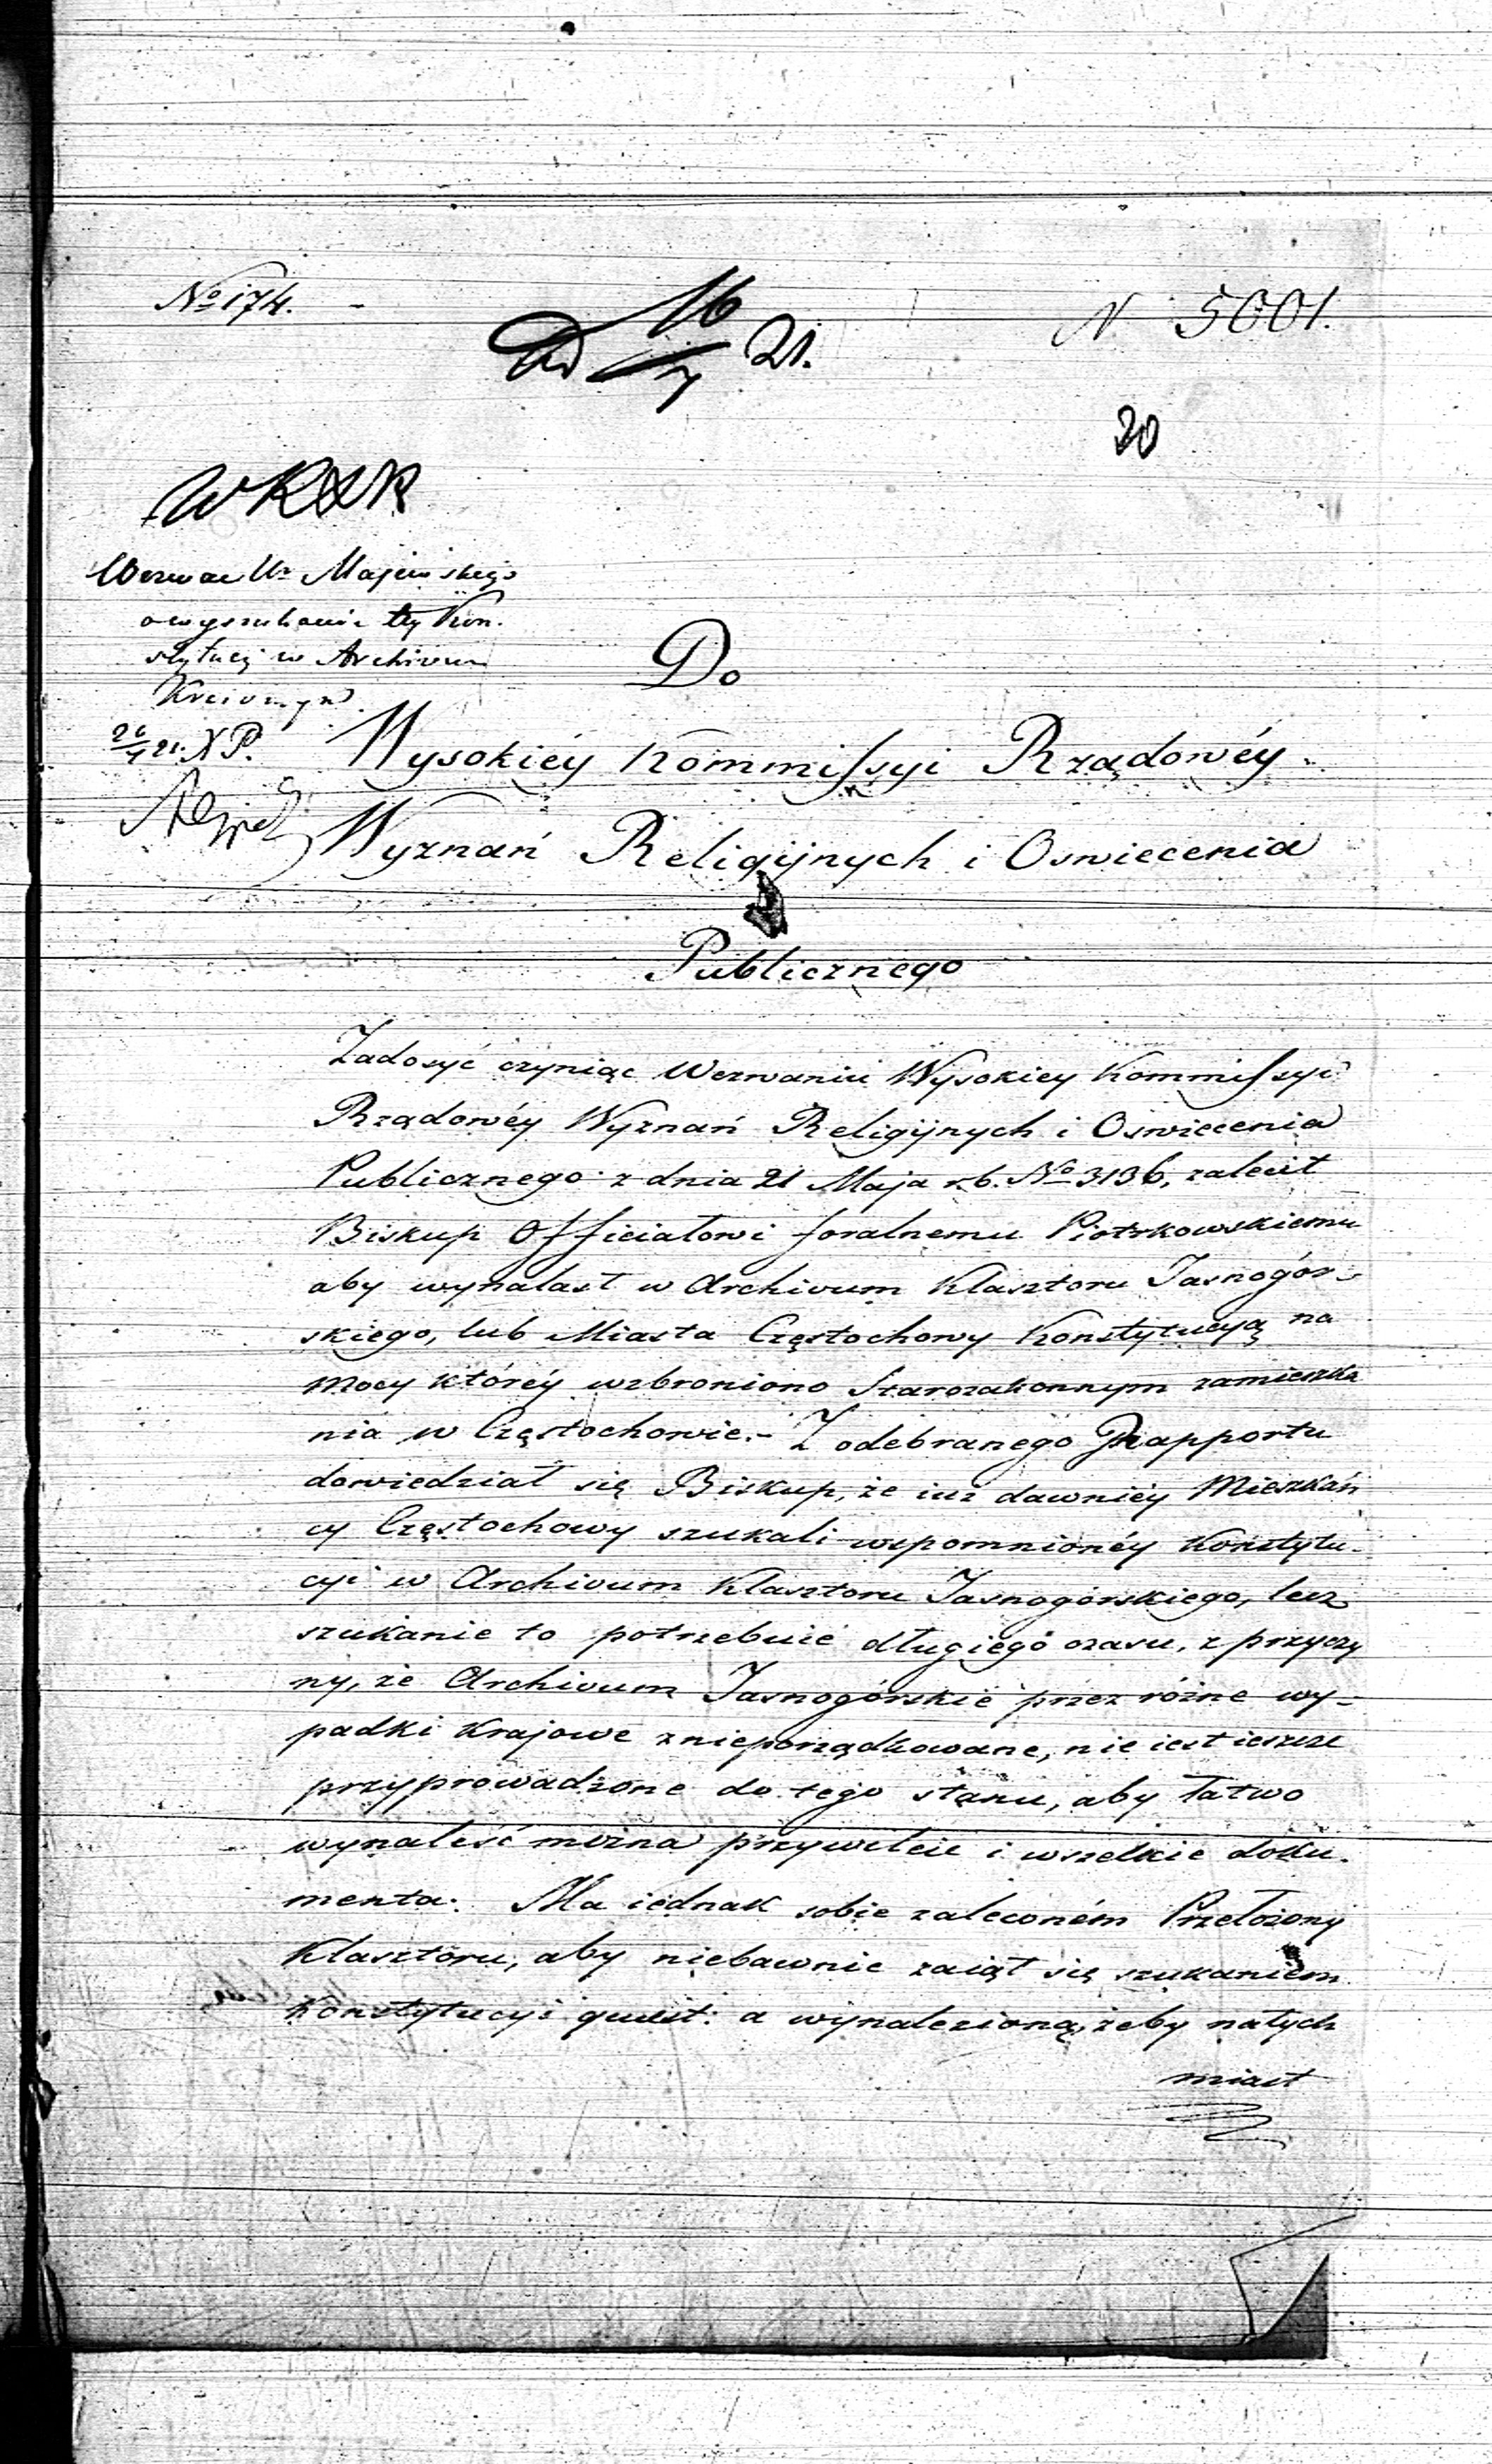 No 174.
16/7 21.
N 5001.
20
Wezwać Ur Majewskiego
o wyszukanie tey Kon-
stytucyi w Archivum
Do
Wysokiéy Kommissyi Rządowéy
Wyznań Religijnych i Oswiecenia
Publicznego
Zadosyć czyniąc Wezwaniu Wysokiey Kommissyi
Rządowéy Wyznań Religijnych i Oswiecenia
Publicznego z dnia 21 Maja r.b. No 3136, zalecił
Biskup Officiałowi foralnemu Piotrkowskiemu
aby wynalasł w Archivum Klasztoru Jasnogór-
skiego, lub Miasta Częstochowy Konstytucyą na
mocy któréy wzbroniono Starozakonnym zamieszka
nia w Częstochowie.- Z odebranego Rapportu
dowiedział się Biskup, że iuż dawniéy Mieszkań
cy Częstochowy szukali wspomnionéy Konstytu-
cyi w Archivum Klasztoru Jasnogórskiego, lecz
szukanie to potrzebuie długiego czasu, z przyczy
ny, że Archivum Jasnogórskie przez różne wy-
padki Krajowe znieporządkowane, nie iest ieszcze
przyprowadzone do tego stanu, aby łatwo
wynaleść można przywileie i wszelkie doku-
menta. Ma iednak sobie zaleconém Przełożony
Klasztoru, aby niebawnie zaiął się szukaniem
Konstytucyi quest: a wynalezioną, żeby natych
miast